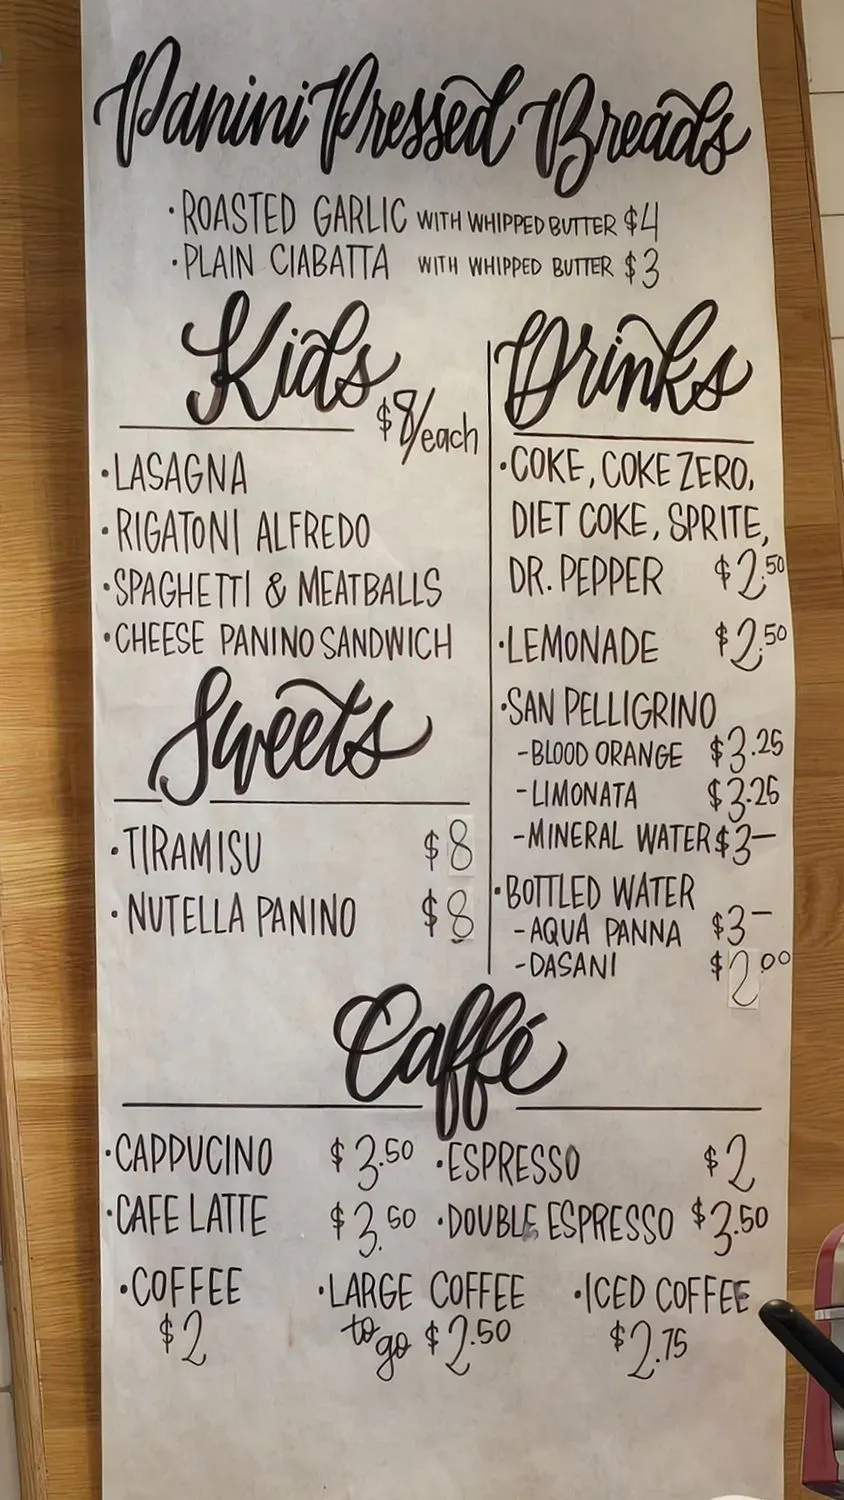 Panini Pressed Breads
·ROASTED GARLIC WITH WHIPPED BUTTER $4
·PLAIN CIABATTA WITH WHIPPED BUTTER $3
Kids
$8/each
·LASAGNA
·RIGATONI ALFREDO
·SPAGHETTI & MEATBALLS
·CHEESE PANINO SANDWICH
Sweets
·TIRAMISU $8
·NUTELLA PANINO $8
Drinks
·COKE, COKE ZERO,
DIET COKE, SPRITE,
DR. PEPPER $2.50
·LEMONADE $2.50
·SAN PELLIGRINO
-BLOOD ORANGE $3.25
-LIMONATA $3.25
-MINERAL WATER $3—
·BOTTLED WATER
-AQUA PANNA $3—
-DASANI $2 00
Caffé
·CAPPUCINO $3.50 ·ESPRESSO $2
·CAFE LATTE $3.50 ·DOUBLE ESPRESSO $3.50
·COFFEE ·LARGE COFFEE ·ICED COFFEE
$2 to go $2.50 $2.75